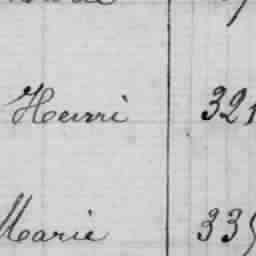 Henri 321
Marie 335